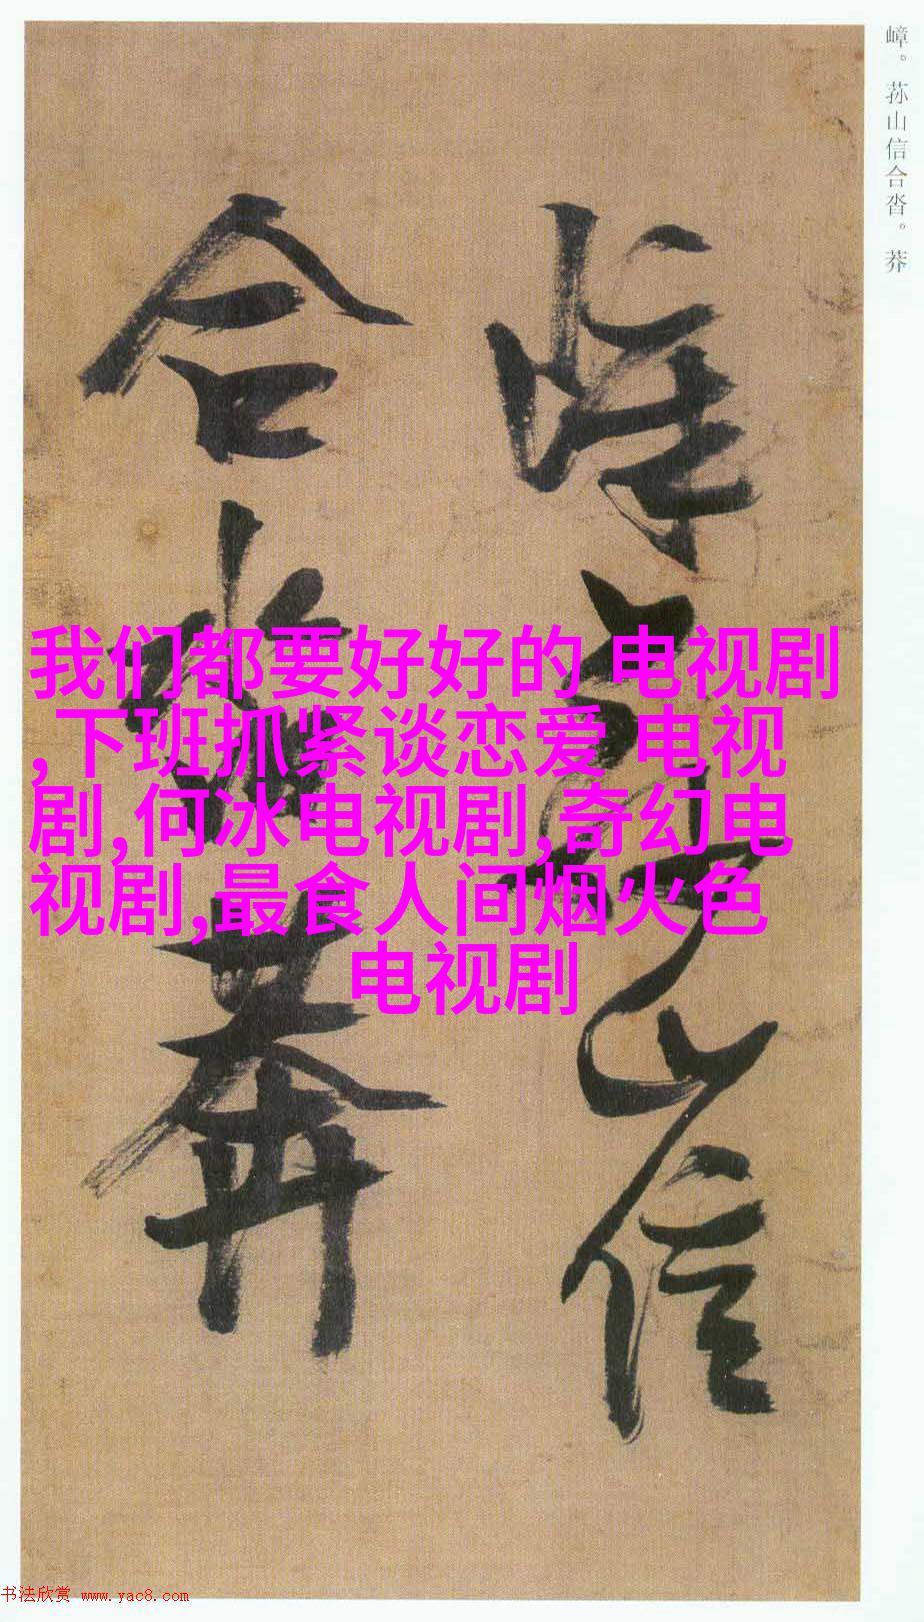 嶂。荪山信合沓。莽
嶂荪山信
合沓莽
我们都要好好的 电视剧
,下班抓紧谈恋爱 电视
剧,何冰电视剧,奇幻电
视剧,最食人间烟火色
电视剧
书法欣赏 www.yac8.com